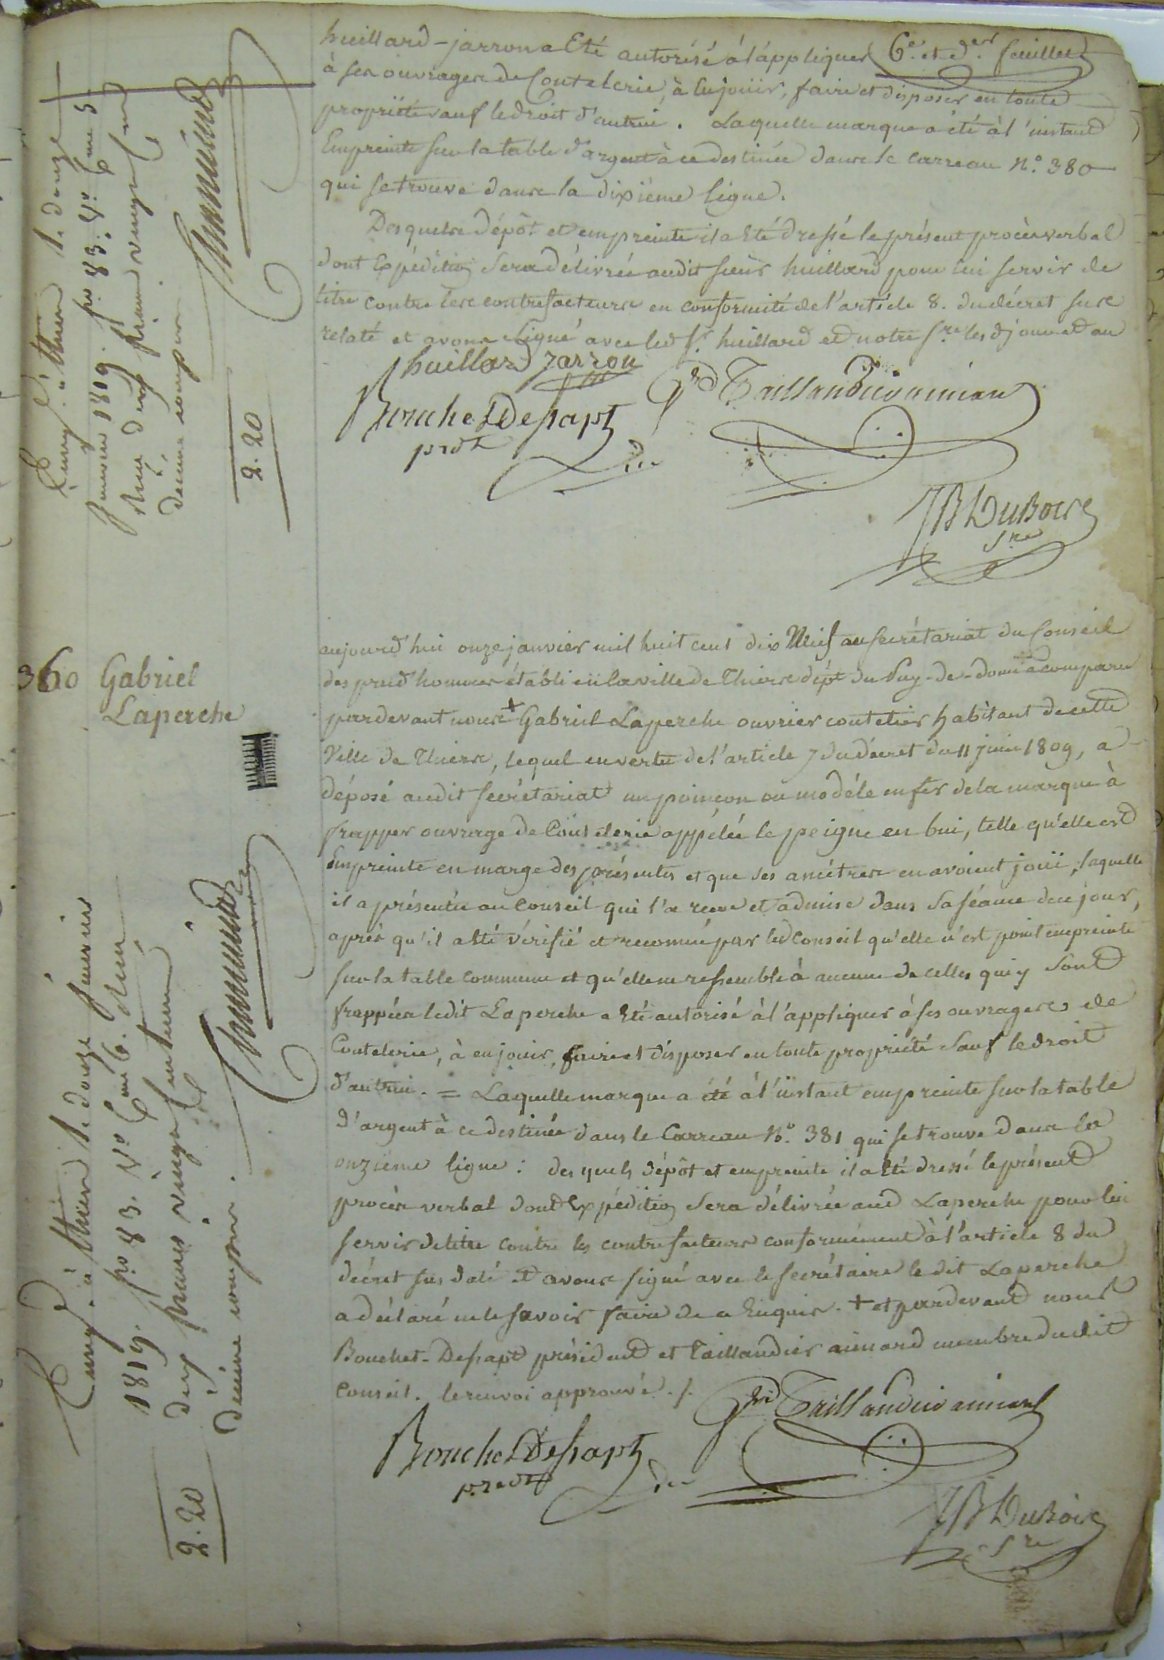 6e. et der. feuillet
huillard-jarron a Eté autorisé à l'appliquer
à ses ouvrages de Coutelerie, à en jouir, faire et disposer en toute
propriété sauf le droit d'autrui. Laquelle marque a été à l'instant
Empreinte sur la table d'argent à ce destinée dans le carreau No. 380
qui se trouve dans la dixième ligne.
Desquels dépôt et empreinte il a Eté dressé le présent procès verbal
dont Expédition Sera délivrée audit sieur huillard pour lui servir de
titre contre les contrefacteurs en conformité de l'article 8. du décret sus
relaté et avons signé avec led. Sr. huillard et notre Sre. les d. jour et an
huillard jarron
Grd Taillandier aimard
Bouchet Desapt
prdt
JB Dubois
Sre
Enreg. à thiers le douze
janvier 1819. fo. 83. Vo. Cse 5.
Reçu deux francs vingt Cmes
décime compris.
2.20
360
Gabriel
Laperche
aujourd'hui onze janvier mil huit cent dix Neuf au secrétariat du Conseil
des prud'hommes établi en la ville de Thiers dépt. du Puy-de-dome a comparu
pardevant nous + Gabriel Laperche ouvrier coutelier habitant de cette
Ville de Thiers, lequel en vertu de l'article 7 du décret du 11 juin 1809, a
déposé audit secrétariat un poinçon ou modéle en fer de la marque à
frapper ouvrage de Coutelerie appélée le peigne en bui, telle qu'elle est
Empreinte en marge des présentes et que ses ancêtres en avoient joui, laquelle
il a présentée au Conseil qui l'a reçue et admise dans Sa séance de ce jour,
après qu'il a été vérifié et reconnu par led. Conseil qu'elle n'est point empreinte
sur la table commune et qu'elle ne ressemble à aucune de celles qui y Sont
frappées ledit Laperche a Eté autorisé à l'appliquer à ses ouvrages de
Coutelerie, à en jouir, faire et disposer en toute propriété Sauf le droit
d'autrui. = Laquelle marque a été à l'instant empreinte sur la table
d'argent à ce destinée dans le Carreau No. 381 qui se trouve dans la
onzième ligne: desquels dépôt et empreinte il a Eté dressé le présent
procès verbal dont Expédition Sera délivrée aud. Laperche pour lui
servir de titre contre les contrefacteurs conformément à l'article 8 du
décret sus daté et avons signé avec le secrétaire le dit Laperche
a déclaré ne le savoir faire de ce Enquis. + et pardevant nous
Bouchet-Desapt président et Taillandier aimard membre dudit
Conseil. le renvoi approuvé./.
Grd Taillandier aimard
Bouchet Desapt
président
JB Dubois
Sre
Enreg. à thiers le douze janvier
1819. fo. 83. Vo. Cse 6. Reçu
deux francs vingt centimes
décime compris.
2.20